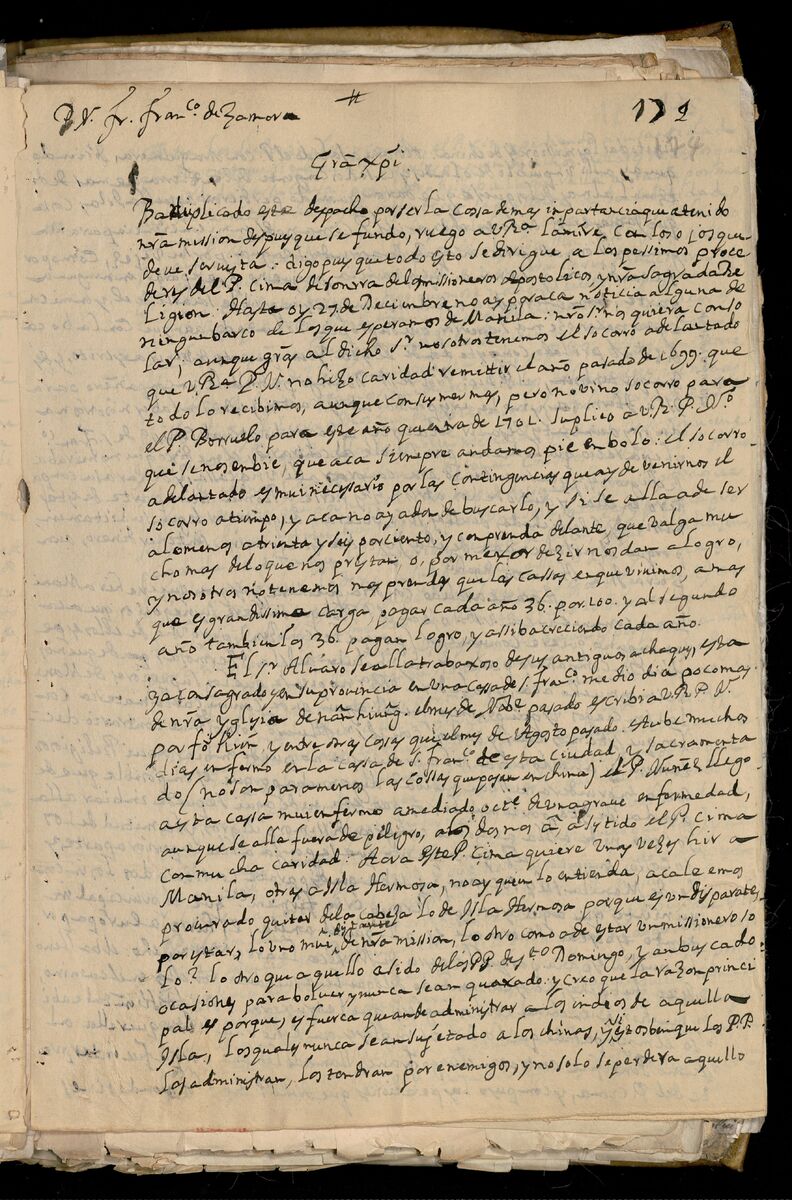 P. N. fr. Franco. de Zamora # 171
Gra. xpi
Ba duplicado este despacho por ser la cossa de mas inportancia que a tenido
nra mission despues que se fundo, ruego a V Ra. la mire con los ojos que
deve ser vista: digo pues que todo esto se dirigue a los pessimos proce
deres del P. Cima desonra de los missioneros apostolicos y nra sagrada Re
ligion. Hasta oy 27. de Deciembre no ay por aca noticia alguna de
ningun barco de los que esperamos de Manila: nro Sr. nos quiera conso
lar; aunque gras al dicho Sr. nosotros tenemos el socorro adelantado
que V. Ra. P. N. no hizo caridad remittir el año pasado de 1699. que
todo lo recibimos, aunque con sus mermas, pero no vino socorro para
el P. Borruelo para este año que entra de 1701. suplico a V. R. P. No.
que se nos enbie, que aca siempre andamos pie en bolo: el socorro
adelantado es mui necesario por las contingencias que ay de venirnos el
socorro a tiempo, y aca no ay adonde buscarlo, y si se alla a de ser
alomenos a trienta y seis por ciento, y con prenda delante, que valga mu
cho mas de lo que nos prestan, o, por mejor dezir nos dan a logro,
y nosotros no tenemos mas prendas que las cassas en que vivimos, a mas
que es grandissima carga pagar cada año 36. por. 100. y al segundo
año tambien los 36. pagan logro, y assi ba creciendo cada año.
El Sr. Alvaro se alla trabaxoso de sus antiguos achaques, esta
ya consagrado y en su provincia en una cassa de S. Franco. medio dia poco mas
de nra yglesia de nan hiung. el mes de Nobe. pasado escribi a V. R. P. N.
por fo Kien y entre otras cossas que el mes de Agosto pasado. estube muchos
dias enfermo en la cassa de S. Franco. de esta ciudad, y sacramenta
do (no son para menos las cossas que pasan en china) el P. Nuñez llego
a esta cassa mui enfermo a mediado octe. de una grave enfermedad,
aunque se alla fuera de peligro, a los dos nos a asistido el P. Cima
con mucha caridad. Aora este P. Cima quiere unas vezes hir a
Manila, otras a Isla Hermosa, no ay quien lo entienda, aca le emos
procurado quitar de la cabeza lo de Isla Hermosa porque es un disparate,
por estar, lo uno mui distante de nra mission, lo otro como a de estar un missionero so
lo? lo otro que aquello a sido de los PP. de sto. Domingo, y an buscado
ocasiones para bolver y nunca se an quaxado. y creo que la razon princi
pal es porque, es fuerca que an de administrar a los indios de aquella
Isla, los quales nunca se an sujetado a los chinas, y si estos ben que los P.P.
los administran, los tendran por enemigos, y no solo se perdera aquello